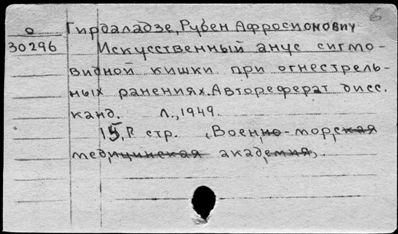 о Гирдаладзе, Рубен Афросионович
30296 Искусственный анус сигмо-
видной кишки при огнестрель-
ных ранениях. Автореферат дисс.
канд. Л., 1949.
15, стр. , Военно-морская
медицинская академия,.